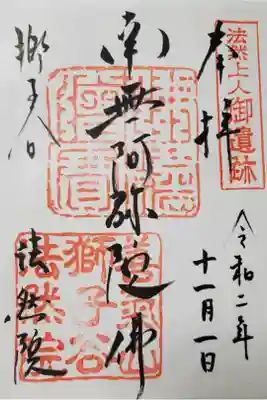 法然上人御遺跡
奉拝
令和二年
十一月一日
南無阿弥陀佛
獅子谷
法然院
獅子谷